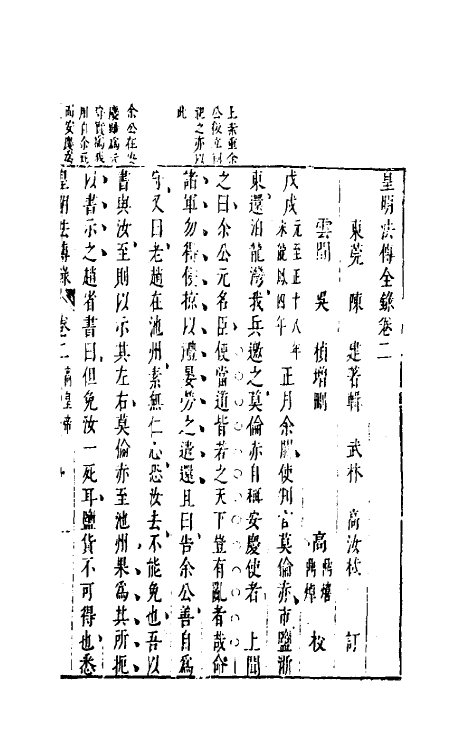 皇明法傳全錄卷二
東莞 陳 建著輯 武林 高汝栻 訂
雲間 吳 楨增刪 高 校
戊戌 元至正十八年 正月余闕使判官莫倫赤市鹽浙
東還泊龍灣我兵邀之莫倫赤自稱安慶使者 上聞
之曰余公元名臣使當道皆若之天下豈有亂者哉命
諸軍勿得侵掠以禮宴勞之遣還且曰告余公善自爲
守又曰老趙在池州素無仁心恐汝去不能免也吾以
書與汝至則以示其左右莫倫赤至池州果爲其所扼
以書示之趙省書曰但免汝一死耳鹽貨不可得也悉
皇明法傳錄 卷二 高皇帝
上素重余
公
視之亦以
此
余公在安
慶雖爲元
守實爲我
用自余死
而安慶爲